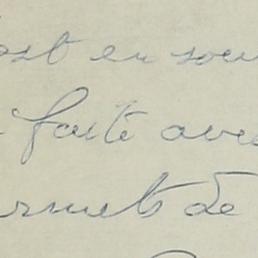 ost en sou
faite avec
rmets de